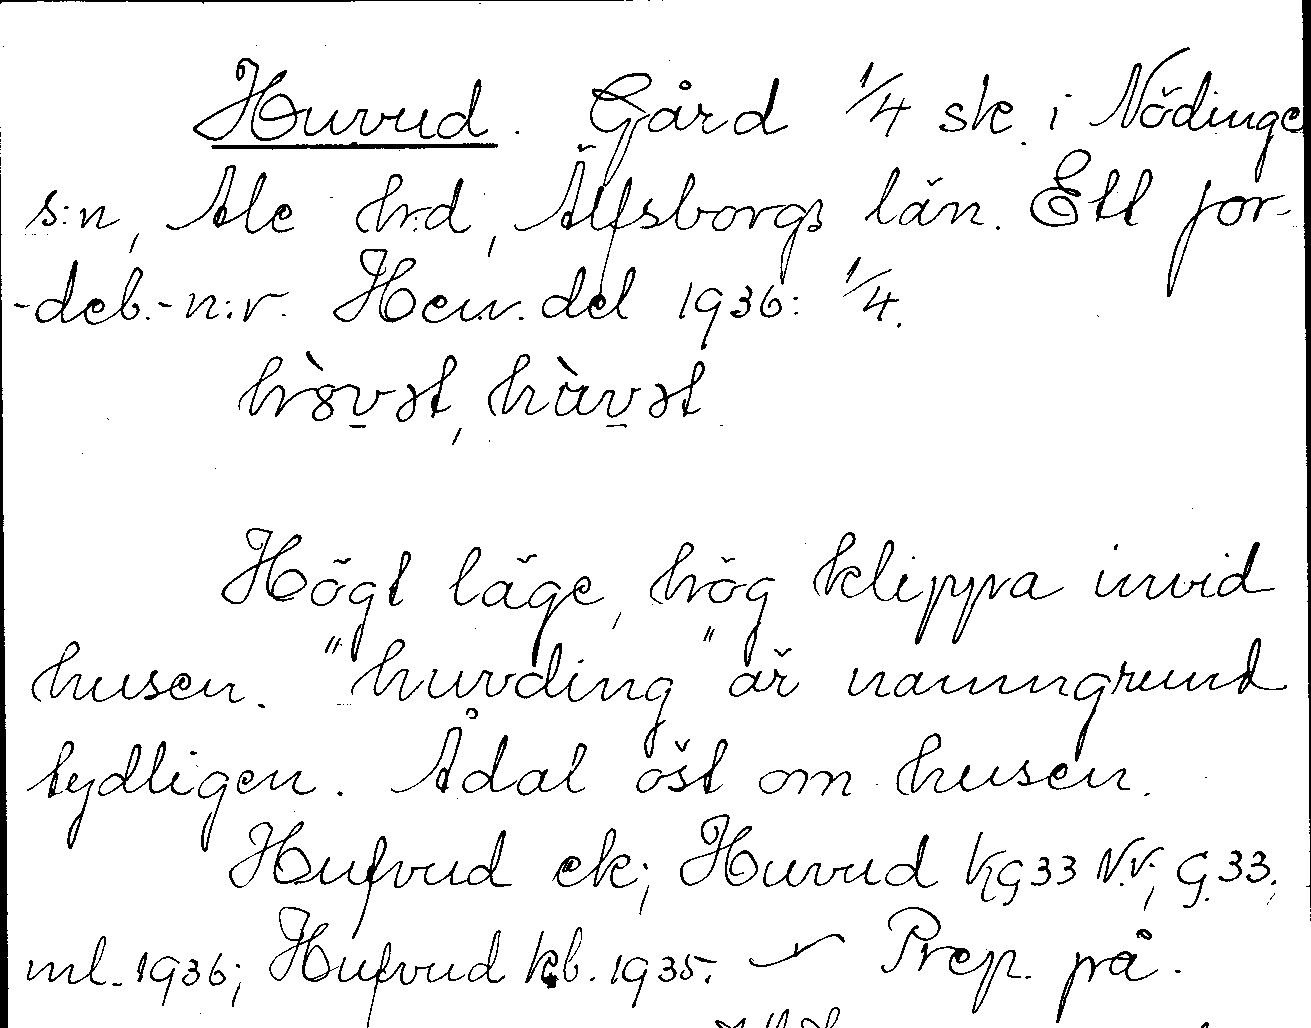 Huvud. Gård 1/4 sk. i Nödinge
s:n, Ale hrd, Älfsborgs län. Ett jor-
-deb.-n:r. Hem.del 1936: 1/4.
Högt läge, hög klippa invid
husen. "huvding" är namngrund
tydligen. Ådal öst om husen.
Hufvud ek; Huvud kg33 N.V.; G.33.;
ml. 1936; Hufvud kb. 1935. Prep. på.